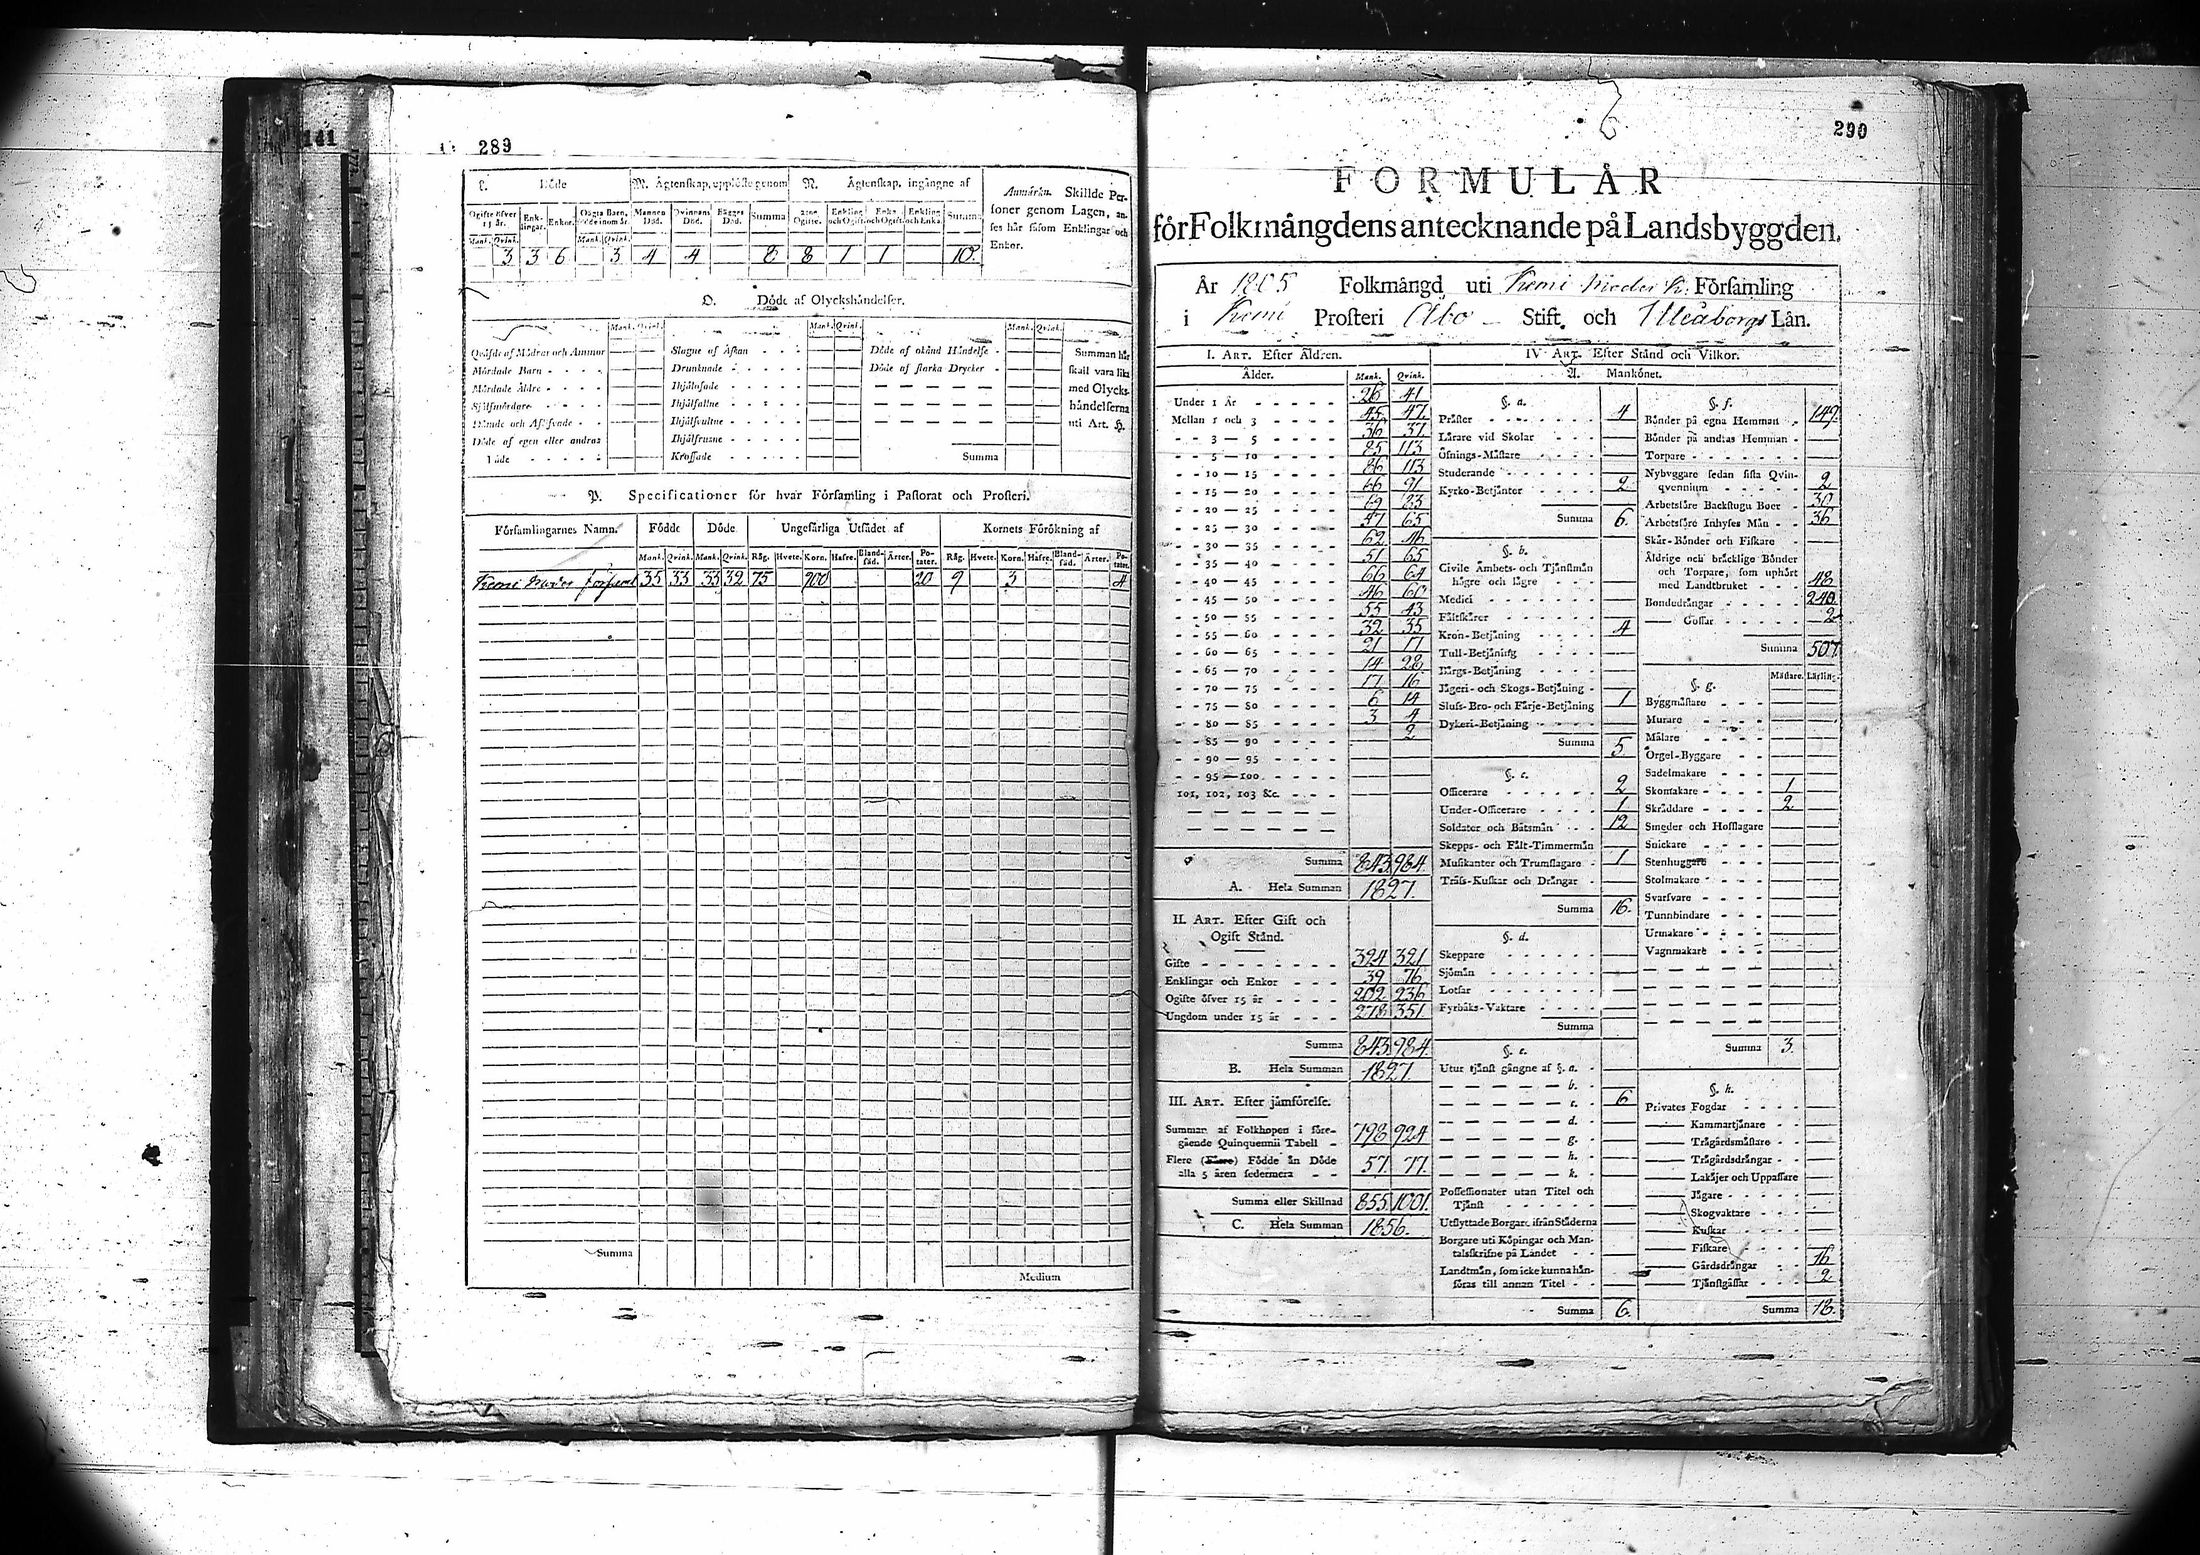 141
289
L. Döde
M. Ägtenskap, upplöste genom
N. Ägtenskap, ingångne af
Anmärkn. Skillde Per-
soner genom Lagen, an-
ses här såsom Enklingar och
Enkor.
Ogifte öfver 15 år. Enk-lingar. Enkor. Oägta Barn, döde inom år. Mannens Död. Qvinnans Död. Bägges Död. Summa Enkling och Ogift. Enka och Ogift. Enkling och Enka. Summa
Mank. Qvink. Mank. Qvink.
3 3 6 3 4 4 8 8 1 1 10.
O. Döde af Olyckshändelser.
Mank. Qvink. Mank. Qvink. Mank. Qvink.
Qväfde af Mödrar och Ammor Slagne af Åskan Döde af okänd Händelse Summan här
Mördade Barn Drunknade Döde af starka Drycker skall vara lika
Mördade Äldre Ihjälfrusne med Olycks-
Sjelfmördare Ihjälfallne händelserna
Dömde och Aflifvade uti Art. H.
Döde af egen eller andras
våde Krossade Summa
P. Specificationer för hvar Församling i Pastorat och Prosteri.
Församlingarnes Namn. Födde Döde Ungefärliga Utsädet af Kornets Förökning af
Mank. Qvink. Mank. Qvink. Råg. Hvete. Korn. Hafre. Bland-säd. Ärter. Po-tater. Råg. Hvete. Korn. Hafre. Bland-säd. Ärter. Po-tater.
Kemi Moder Församl 35 33 33 32 75 200 20 9 3 4
Summa
Medium
290
FORMULÄR
för Folkmängdens antecknande på Landsbyggden.
År 1805 Folkmängd uti Kemi Moder k. Församling
i Kemi Prosteri Åbo Stift och Uleåborgs Län.
I. Art. Efter Åldren.
Ålder. Mank. Qvink.
Under 1 År 26 41
Mellan 1 och 3 45 47
3 — 5 36 37
5 — 10 85 113
10 — 15 86 113
15 — 20 66 91
20 — 25 69 83
25 — 30 57 65
30 — 35 62 46
35 — 40 51 65
40 — 45 66 64
45 — 50 46 60
50 — 55 55 43
55 — 60 32 35
60 — 65 21 17
65 — 70 14 28
70 — 75 17 16
75 — 80 6 14
80 — 85 3 4
85 — 90 2
90 — 95
95 — 100
101, 102, 103 &c.
Summa 843. 984.
A. Hela Summan 1827.
II. Art. Efter Gift och
Ogift Stånd.
Gifte 324 321
Enklingar och Enkor 39 76
Ogifte öfver 15 år 202 236
Ungdom under 15 år 278 351
Summa 843. 984.
B. Hela Summan 1827.
III. Art. Efter jämförelse.
Summan af Folkhopen i före-
gående Quinquennii Tabell 798 924
Flere (Färre) Födde än Döde
alla 5 åren sedermera 57. 77.
Summa eller Skillnad 855. 1001.
C. Hela Summan 1856.
IV Art. Efter Stånd och Vilkor.
A. Mankönet.
§. a.
Präster 4
Lärare vid Skolar
Öfnings-Mästare
Studerande
Kyrko-Betjänter 2
Summa 6.
§. b.
Civile Ämbets- och Tjänstmän
högre och lägre
Medici
Fältskärer
Kron-Betjäning 4
Tull-Betjäning
Bärgs-Betjäning
Jägeri- och Skogs-Betjäning
Sluss- Bro- och Färje-Betjäning 1
Dykeri-Betjäning
Summa 5
§. c.
Officerare 2
Under-Officerare 1
Soldater och Båtsmän 12
Skepps- och Fält-Timmermän
Musikanter och Trumslagare 1
Träss-Kuskar och Drängar
Summa 16.
§. d.
Skeppare
Sjömän
Lotsar
Fyrbåks-Vaktare
Summa
§. e.
Utur tjänst gångne af §. a.
b.
c. 6
d.
g.
h.
k.
Possessionater utan Titel och
Tjänst
Utflyttade Borgare ifrån Städerna
Borgare uti Köpingar och Man-
talsskrifne på Landet
Landtmän, som icke kunna hän-
föras till annan Titel
Summa 6.
§. f.
Bönder på egna Hemman 147.
Bönder på andras Hemman
Torpare
Nybyggare sedan sista Qvin-
qvennium 2
Arbetsföre Backstugu Boer 30
Arbetsföre Inhyses Män 36
Skär-Bönder och Fiskare
Äldrige och bräcklige Bönder
och Torpare, som uphört
med Landtbruket 48
Bondedrängar 240.
Gossar 2
Summa 507.
Mästare. Lärling.
§. g.
Byggmästare
Murare
Målare
Orgel-Byggare
Sadelmakare
Skomakare 1
Skräddare 2
Smeder och Hofslagare
Snickare
Stenhuggare
Stolmakare
Svarfvare
Tunnbindare
Urmakare
Vagnmakare
Summa 3.
§. h.
Privates Fogdar
Kammartjänare
Trägårdsmästare
Trägårdsdrängar
Lakäjer och Uppassare
Jägare
Skogvaktare
Kuskar
Fiskare
Gårdsdrängar 16
Tjänstgåssar 2
Summa 18.